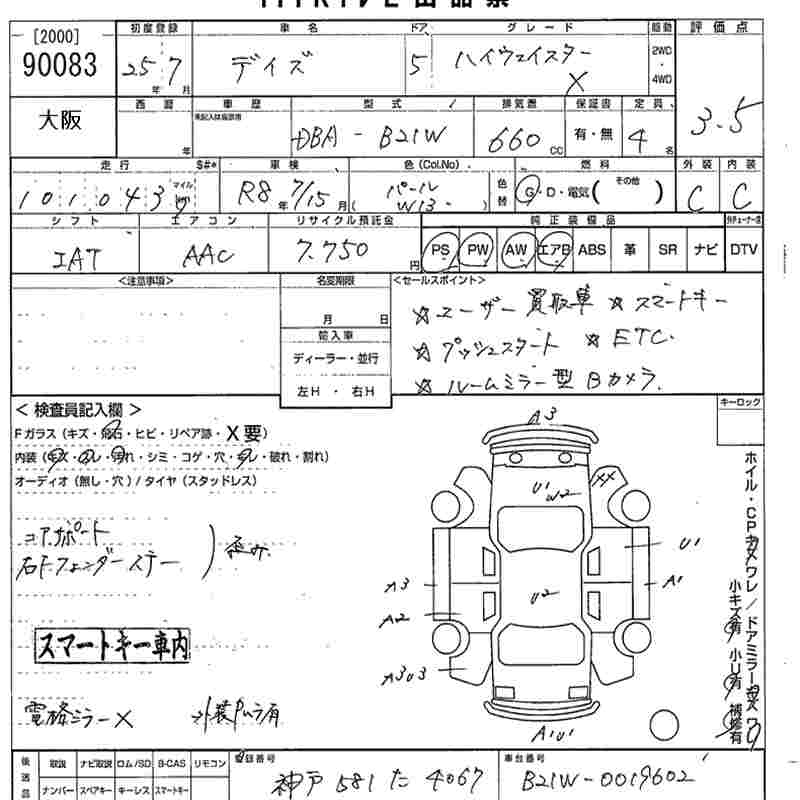 [2000]
90083
大阪
初度登録 車名 ドア グレード 駆動 評価点
25 7 年 月 デイズ 5 ハイウェイスター X 2WD・4WD
3.5
西暦 車歴 型式 排気量 保証書 定員
年 未記入は自家用 DBA - B21W 660 cc 有・無 4 名
走行 S#* 車検 色(Col.No) 燃料 外装 内装
101,043 マイル km R8年 7/15月 パール W13 色替 G・D・電気( その他 ) C C
シフト エアコン リサイクル預託金 純正装備品
IAT AAC 7,750 円 PS PW AW エアB ABS 革 SR ナビ DTV
<注意事項> 名変期限 <セールスポイント>
月 日
輸入車
ディーラー・並行
左H ・ 右H
☆ユーザー買取車 ☆スマートキー
☆プッシュスタート ☆ETC.
☆ルームミラー型Bカメラ.
キーロック
<検査員記入欄>
Fガラス(キズ・飛石・ヒビ・リペア跡・X要)
内装(キズ・スレ・汚れ・シミ・コゲ・穴・ヌレ・破れ・割れ)
オーディオ(無し・穴)/タイヤ(スタッドレス)
コアサポート
右Fフェンダーステー ) 歪み.
スマートキー車内
電格ミラーX 外装Pムラ有
A3
U1 W2
XX
U1
A3
A1
A2
U2
A3U3
A1U1
ホイル・CPキズワレ/ドアミラーキズワレ
小キズ有 小U有 補修有
後送品 取説 ナビ取説 ロム/SD B-CAS リモコン 登録番号 車台番号
ナンバー スペアキー キーレス スマートキー 神戸 581 た 4067 B21W-0019602